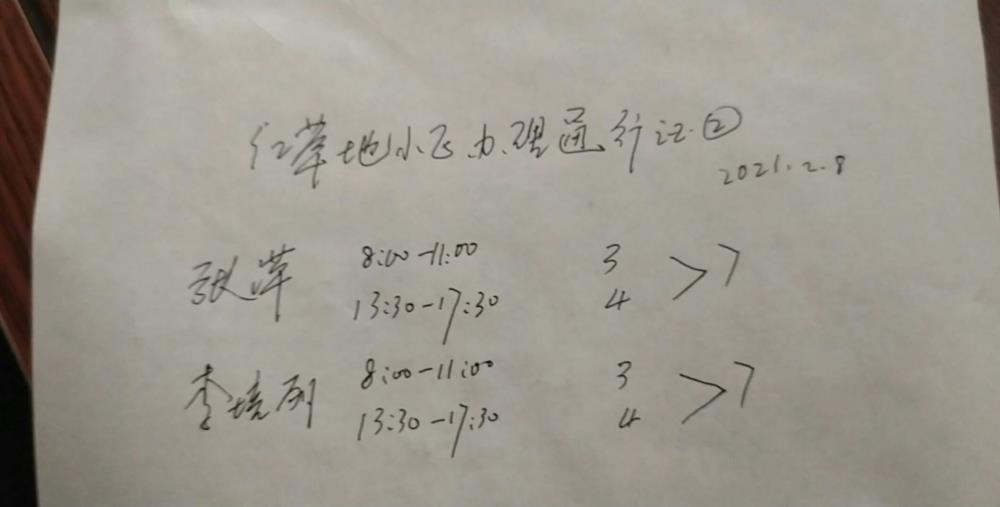 红草地小区办理通行证②
2021.2.8
张萍 8:00-11:00 3 >7
13:30-17:30 4
李培 8:00-11:00 3 >7
13:30-17:30 4